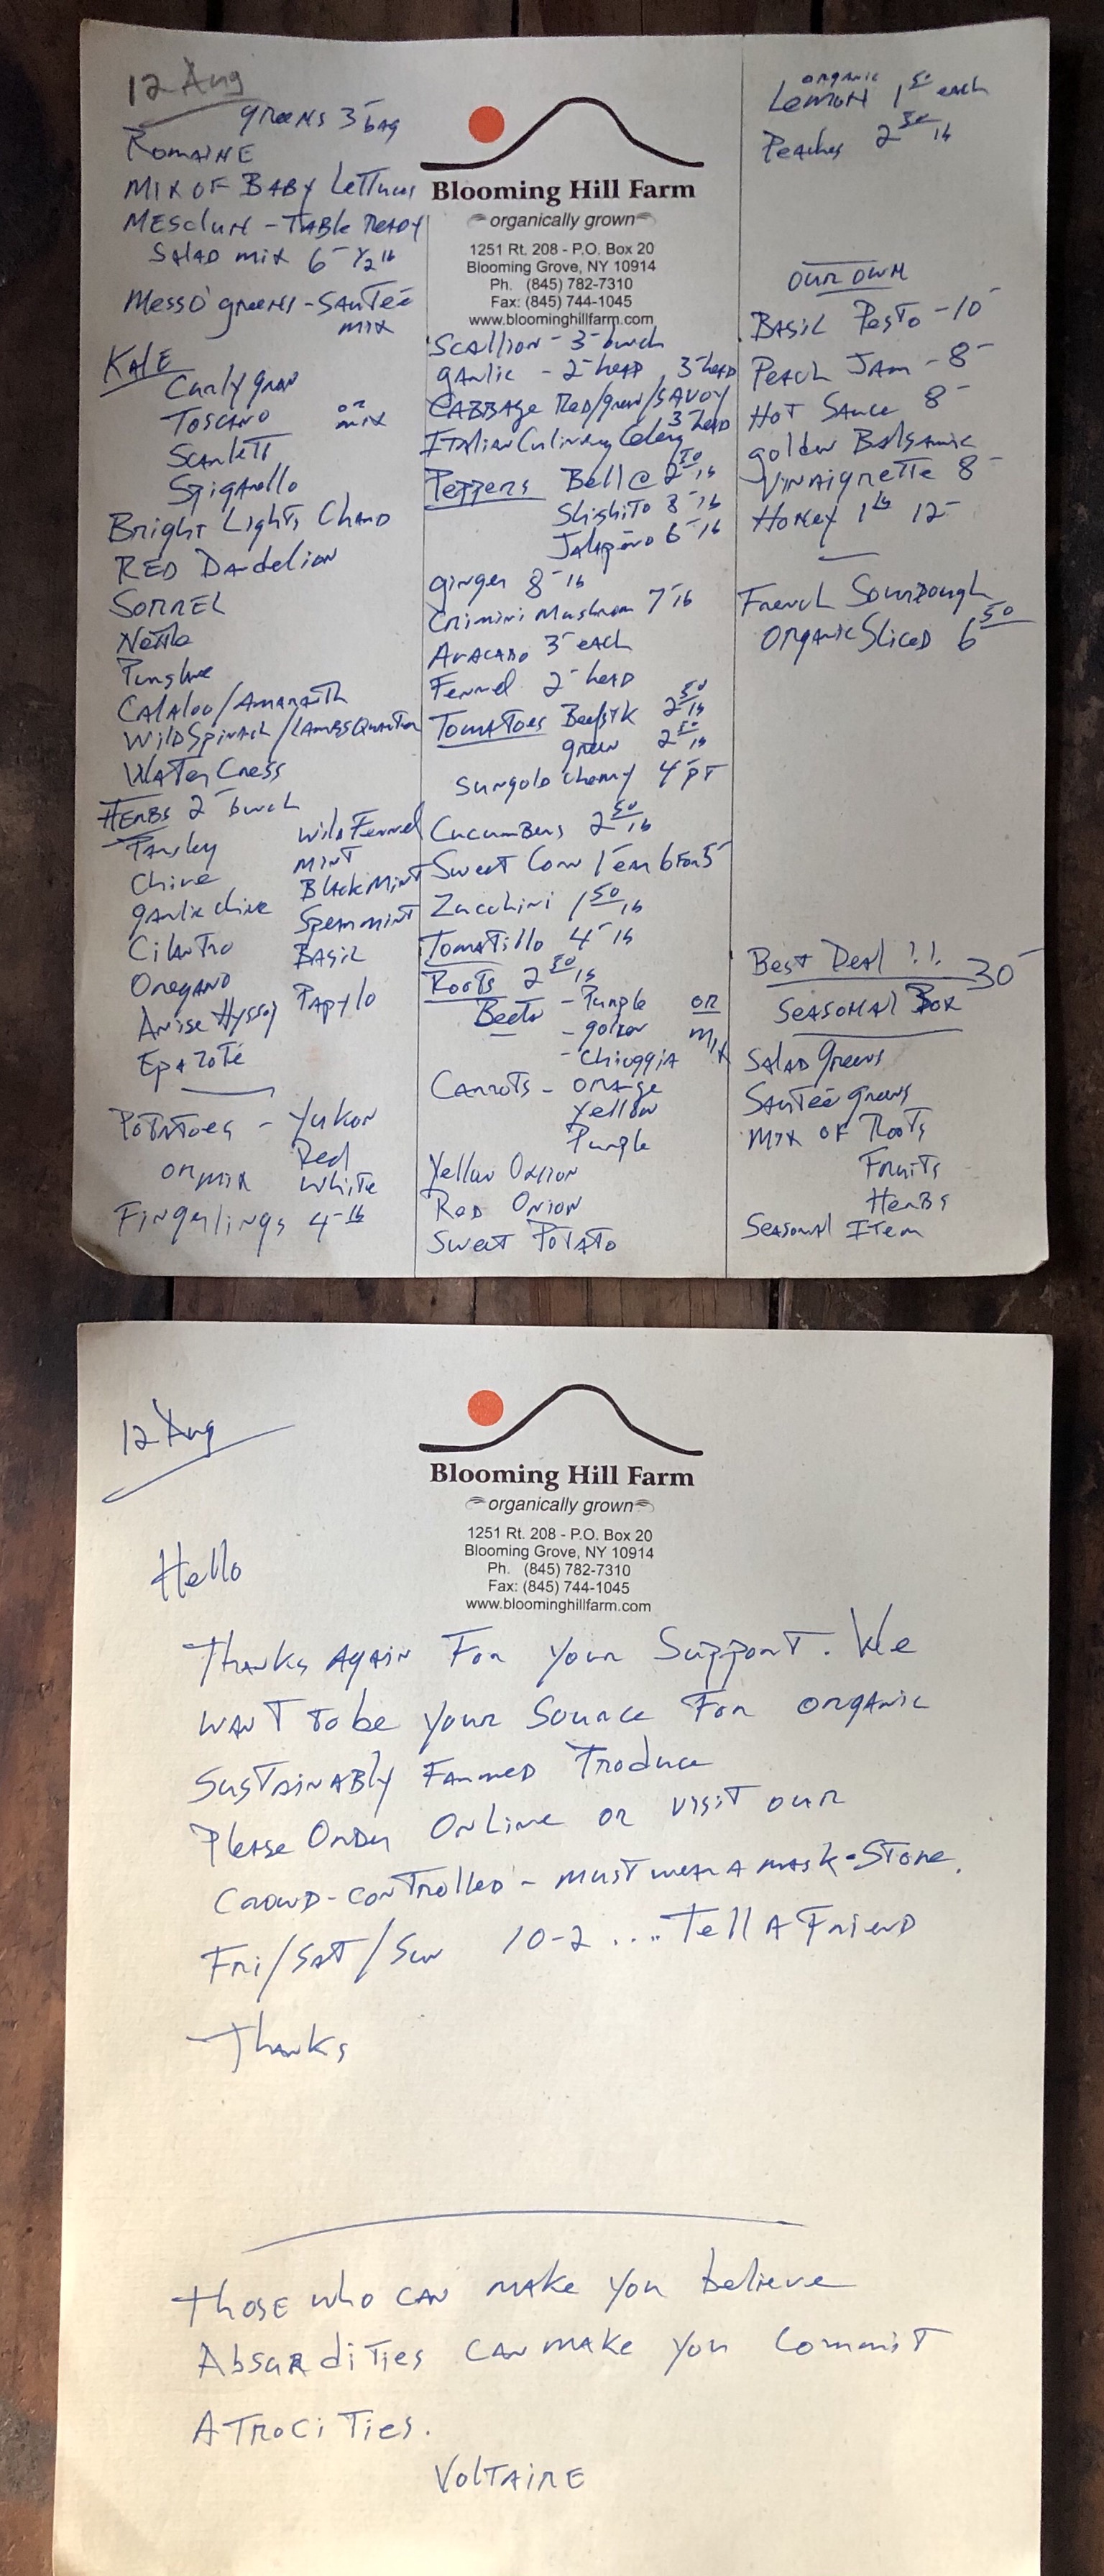 12 Aug
greens 3- bag
Romaine
Mix of Baby Lettuces
Mesclun - Table Ready
Salad mix 6- 1/2 lb
Messo' greens - Sauteé
mix
Kale
Curly green
Toscano or mix
Scarlett
Spigarello
Bright Lights Chard
Red Dandelion
Sorrel
Nettle
Purslane
Calaloo/Amaranth
Wild Spinach/Lambs Quarter
Water Cress
Herbs 2- bunch
Parsley
Chive
garlic chive
Cilantro
Oregano
Anise Hyssop
Epazoté
Wild Fennel
Mint
Black Mint
Spearmint
Basil
Papylo
Potatoes - Yukon
Red
or mix White
Fingerlings 4- lb
Blooming Hill Farm
organically grown
1251 Rt. 208 - P.O. Box 20
Blooming Grove, NY 10914
Ph. (845) 782-7310
Fax: (845) 744-1045
www.bloominghillfarm.com
Scallion - 3- bunch
garlic - 2- head
3- head
Cabbage Red/green/Savoy
Italian Culinary Celery 3- head
Peppers Bell @ 2 50 lb
Shishito 8- lb
Jalapéno 6- lb
ginger 8- lb
Crimini Mushroom 7- lb
Avacado 3- each
Fennel 2- head
Tomatoes Beefstk 2 50 lb
green 2 50 lb
sungold cherry 4- pt
Cucumbers 2 50 lb
Sweet Corn 1 ear 6 for 5-
Zucchini 1 50 lb
Tomatillo 4- lb
Roots 2 50 lb
Beets - Purple or
- golden mix
- Chioggia
Carrots - orange
Yellow
Purple
Yellow Onion
Red Onion
Sweet Potato
organic
Lemon 1 50 each
Peaches 2 50 lb
our own
Basil Pesto - 10-
Peach Jam - 8-
Hot Sauce 8-
golden Balsamic
Vinaigrette 8-
Honey 1 lb 12-
French Sourdough
Organic Sliced 6 50
Best Deal !!
30-
Seasonal Box
Salad greens
Sauteé greens
mix of Roots
Fruits
Herbs
Seasonal Item
12 Aug
Blooming Hill Farm
organically grown
1251 Rt. 208 - P.O. Box 20
Blooming Grove, NY 10914
Ph. (845) 782-7310
Fax: (845) 744-1045
www.bloominghillfarm.com
Hello
Thanks Again For your Support. We
want to be your Source For organic
Sustainably Farmed Produce
Please Order Online or visit our
Crowd-controlled - must wear a mask - Store.
Fri/Sat/Sun 10-2 .... Tell A Friend
Thanks
Those who can make you believe
Absurdities can make you Commit
Atrocities.
Voltaire